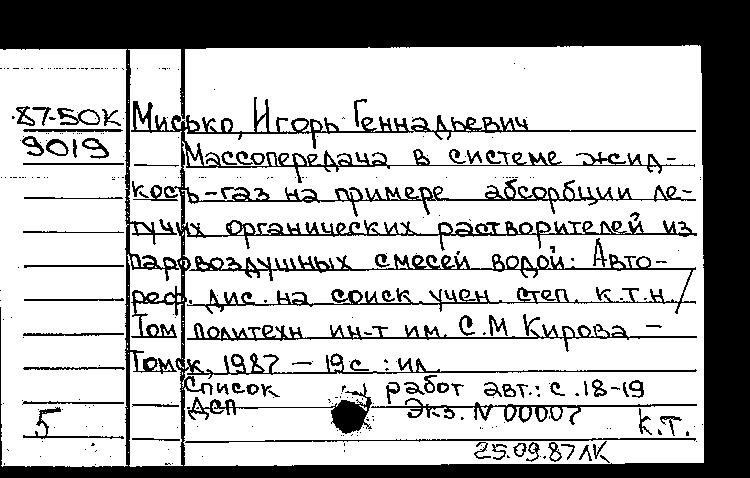 87-50К Мисько, Игорь Геннадьевич
9019 Массопередача в системе жид-
кость-газ на примере абсорбции ле-
тучих органических растворителей из
паровоздушных смесей водой: Авто-
реф. дис. на соиск учен. степ. к.т.н /
Том политехн ин-т им. С.М Кирова –
Томск, 1987 – 19с : ил.
Список работ авт.: с.18-19
ДСП Экз. N 00007
5 К.Т.
25.09.87ЛК